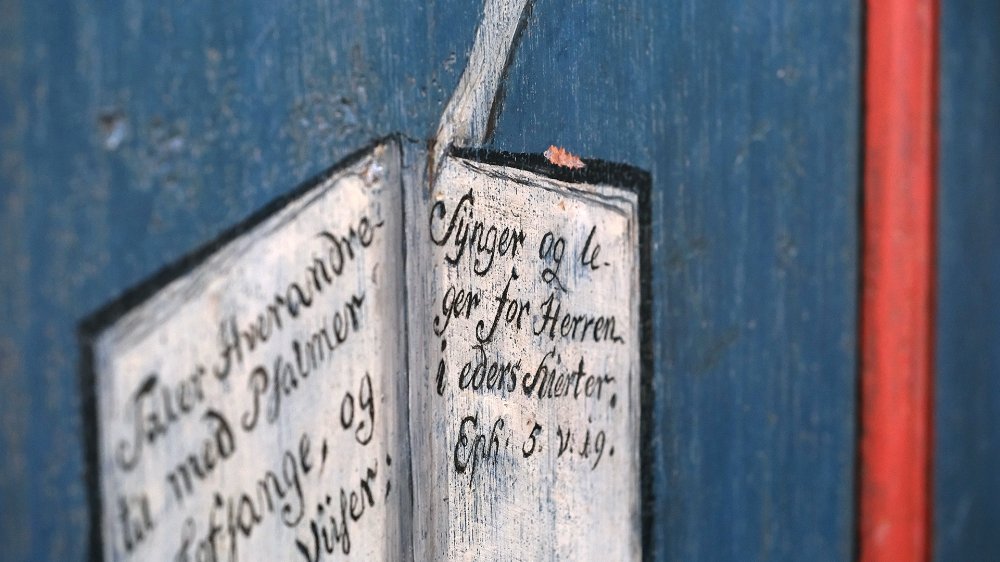 Taler Hverandre-
til med Psalmer
Lofsange, og
Viiser:
Synger og le-
ger for Herren
i eders Hierter.
Eph: 5. v. 19.